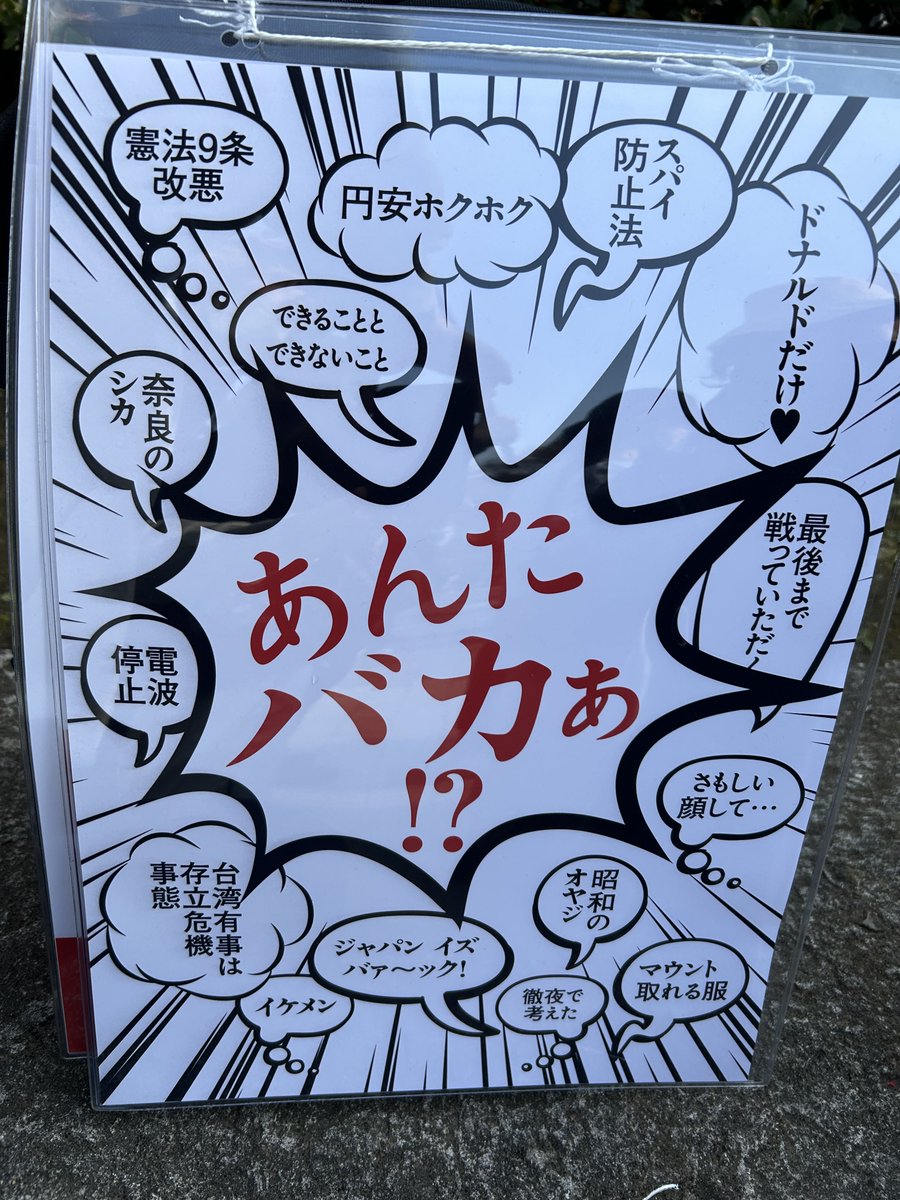 憲法9条
改悪
円安ホクホク
スパイ
防止法
ドナルドだけ♥
できることと
できないこと
奈良の
シカ
最後まで
戦っていただく
あんた
バカぁ
!?
電波
停止
さもしい
顔して…
台湾有事は
存立危機
事態
昭和の
オヤジ
ジャパン イズ
バァ〜ック!
マウント
取れる服
イケメン
徹夜で
考えた